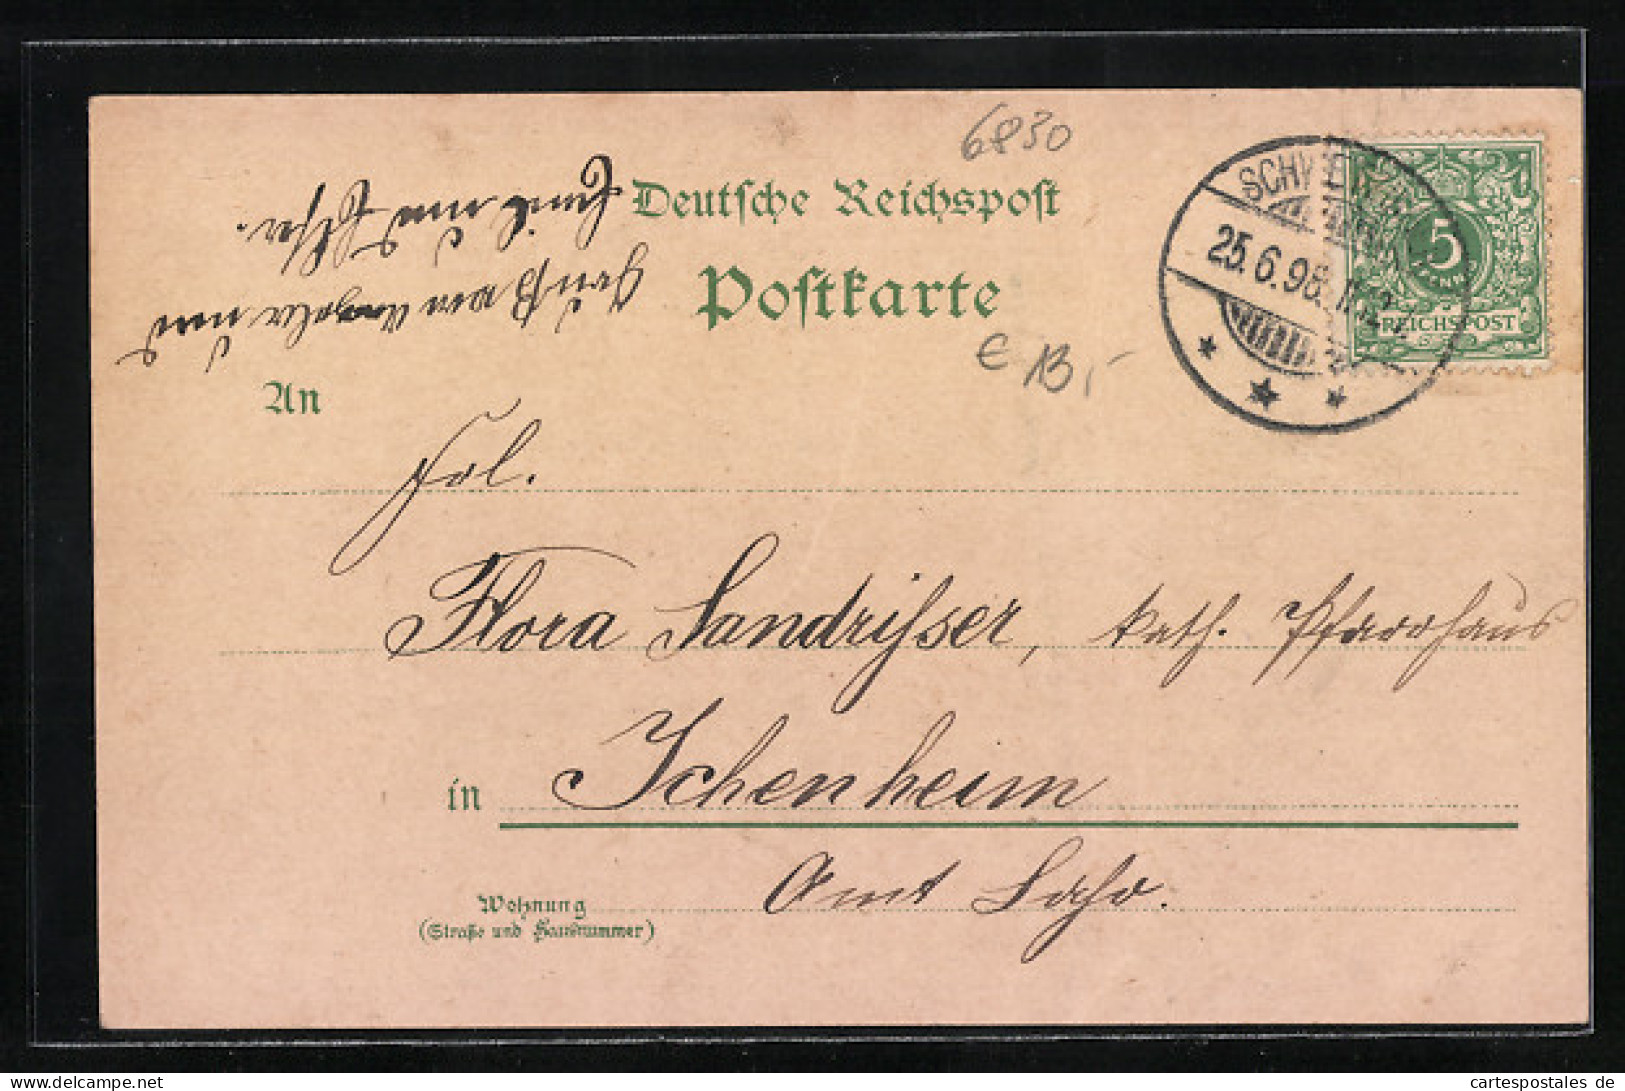 6830
Deutsche Reichspost
Postkarte
€ 13,-
25.6.98.
5
REICHSPOST
Gruß von und
Emil und
An
Frl.
Flora Sandrisser, kath. Pfarrhaus
in Ichenheim
Amt Lahr.
Wohnung
(Straße und Hausnummer)
www.cartespostales.de